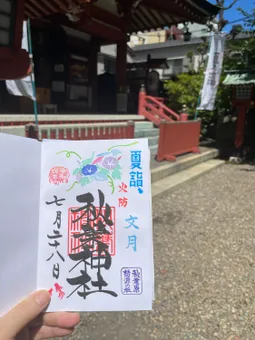 夏詣
火防
文月
秋葉神社
七月二十八日
秋葉原